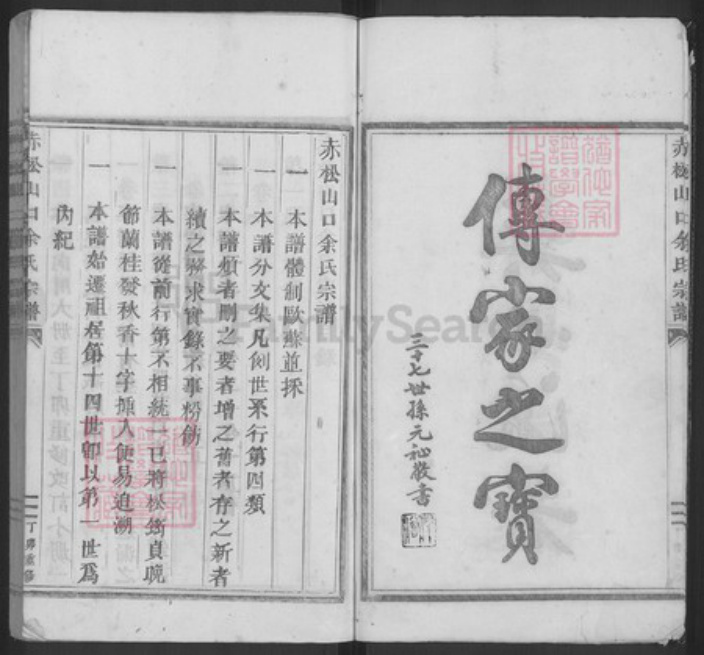 赤松山口余氏宗譜
傳家之寶
三十七世孫元祕敬書
赤松山口余氏宗譜
一 本譜體制歐蘇並採
一 本譜分文集凡例世系行第四類
一 本譜煩者刪之要者增之舊者存之新者
續之務求實錄不事粉飾
一 本譜從前行第不相統一已將松筠貞晚
節蘭桂發秋香十字插入使易追溯
一 本譜始遷祖居第十四世卽以第一世爲
內紀
赤松山口余氏宗譜
丁卯重修
FamilySearch